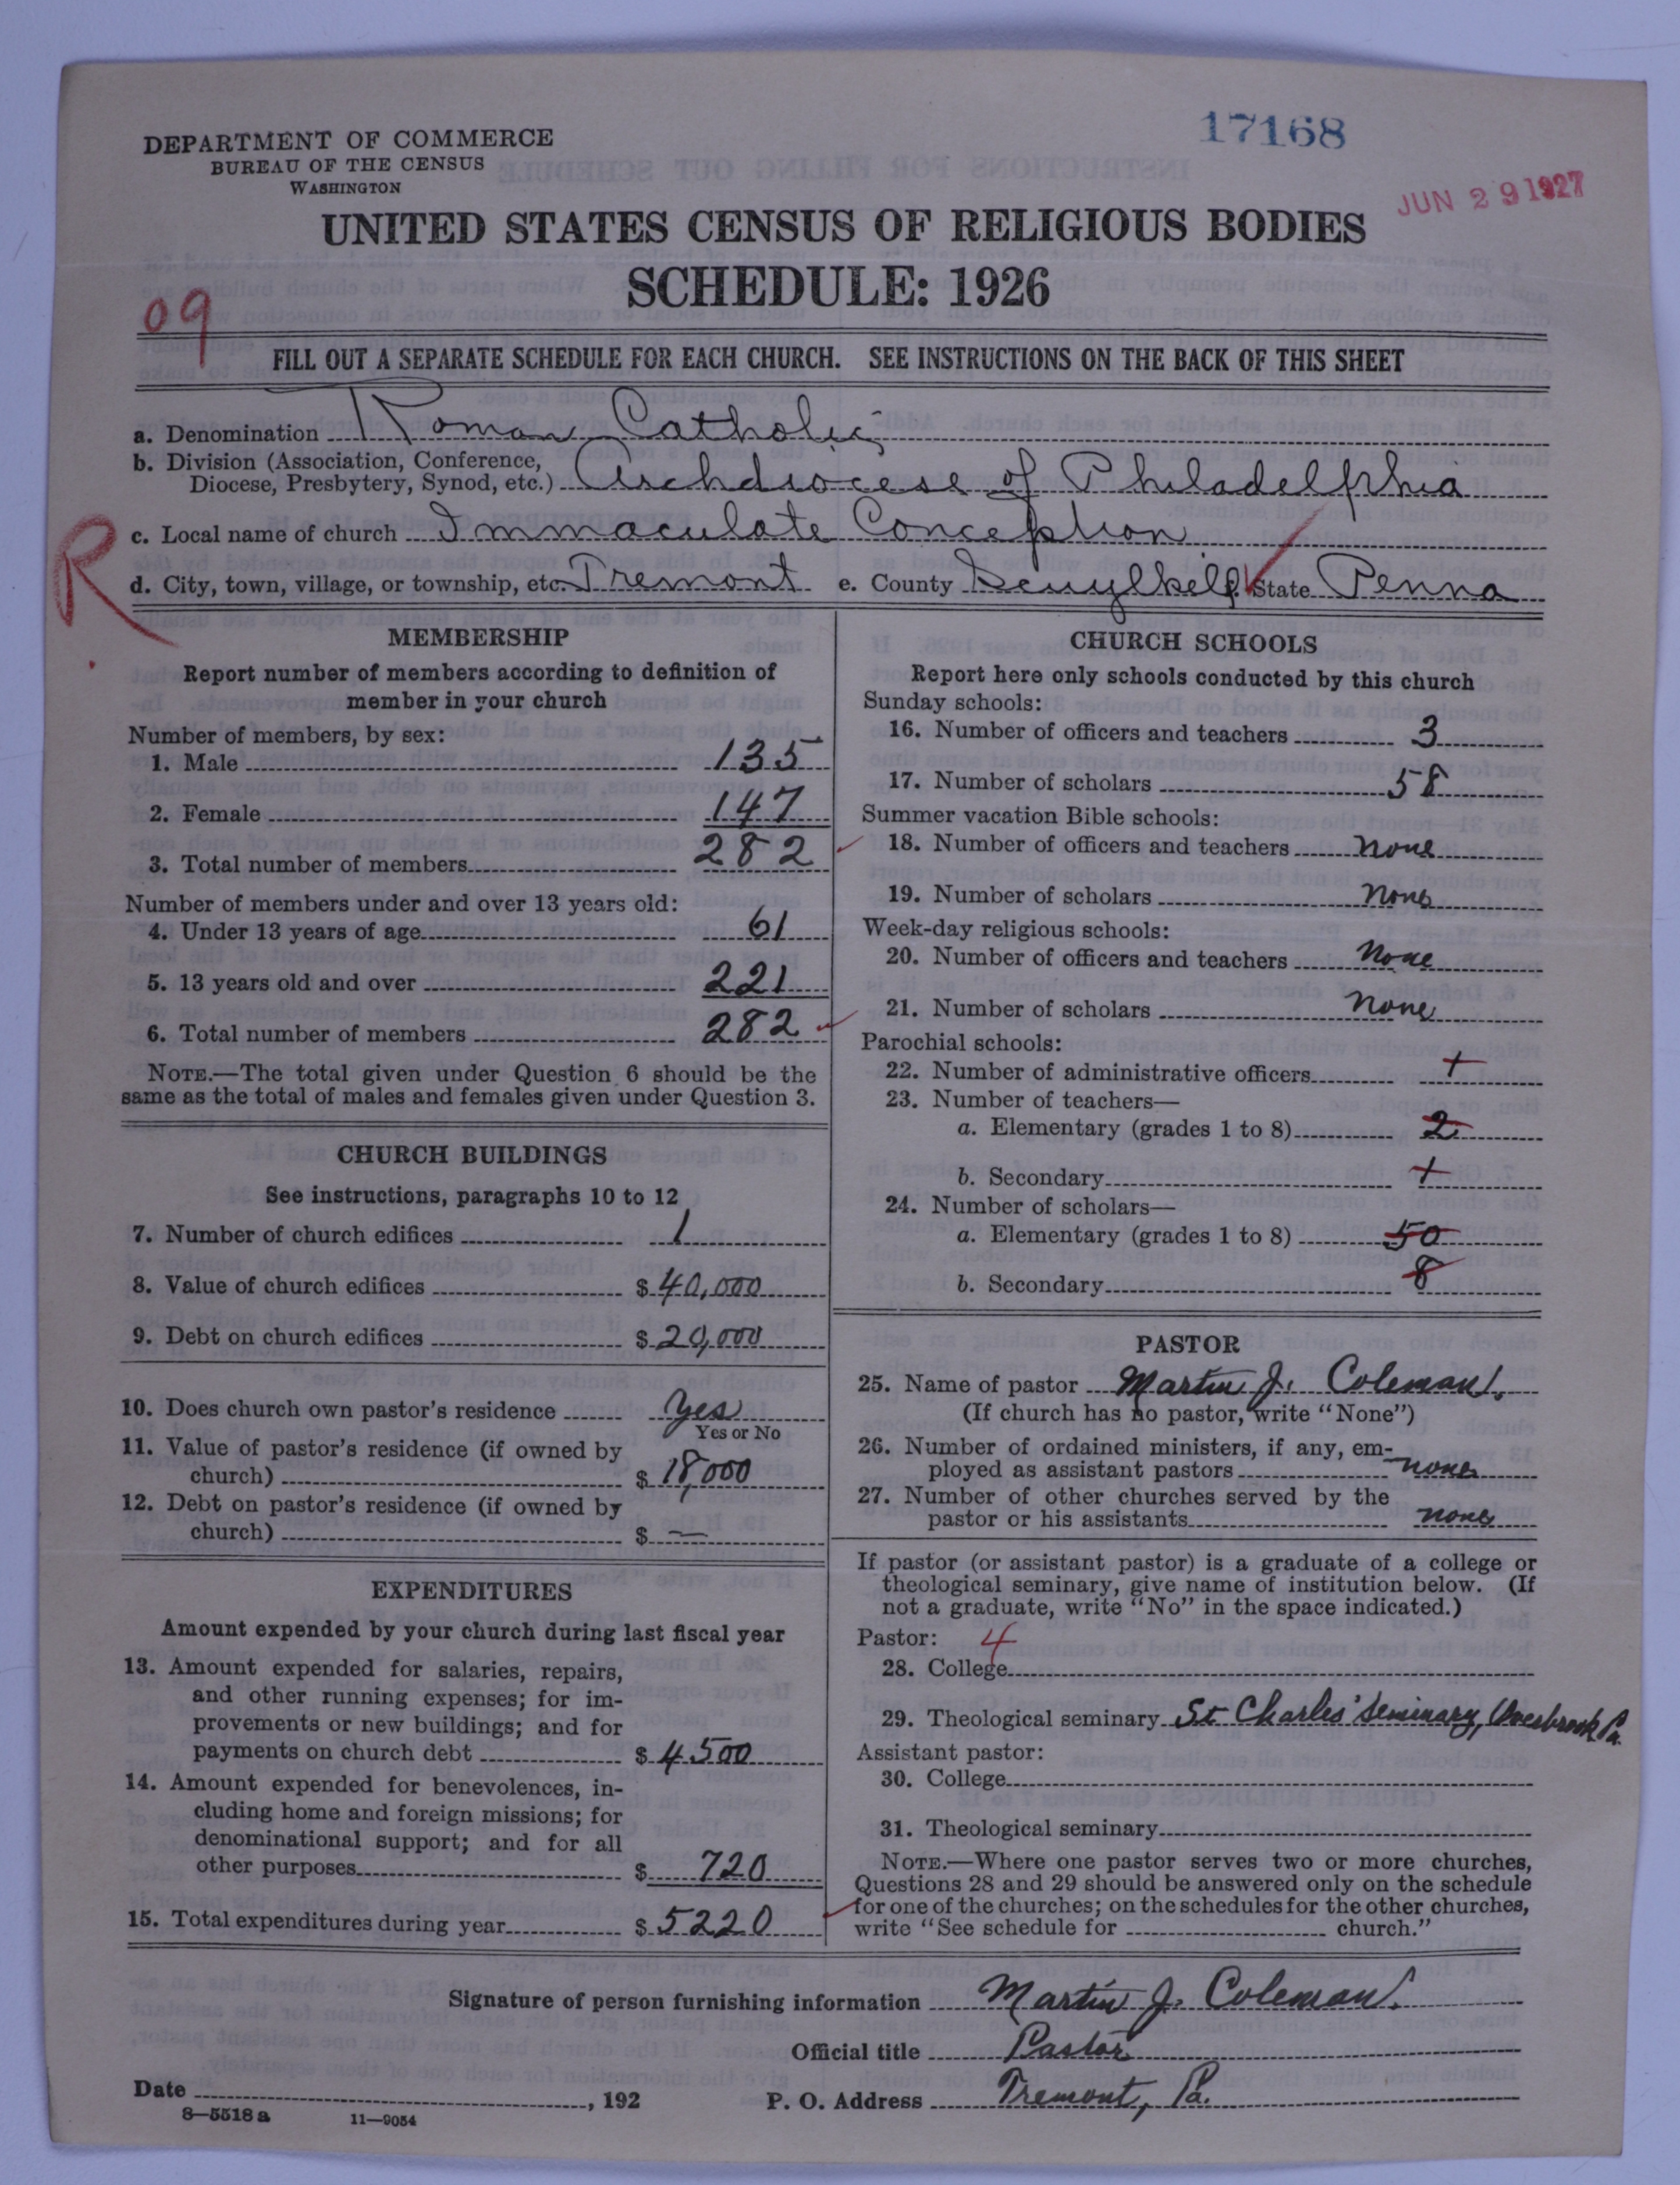 17168
DEPARTMENT OF COMMERCE
BUREAU OF THE CENSUS
WASHINGTON
JUN 29 1927
UNITED STATES CENSUS OF RELIGIOUS BODIES
SCHEDULE: 1926
09
FILL OUT A SEPARATE SCHEDULE FOR EACH CHURCH. SEE INSTRUCTIONS ON THE BACK OF THIS SHEET
a. Denomination Roman Catholic
b. Division (Association, Conference,
Diocese, Presbytery, Synod, etc.) Archdiocese of Philadelphia
c. Local name of church Immaculate Conception
R
d. City, town, village, or township, etc. Tremont e. County State Penna
MEMBERSHIP
Report number of members according to definition of
member in your church
Number of members, by sex:
1. Male 135
2. Female 147
3. Total number of members 282
Number of members under and over 13 years old:
4. Under 13 years of age 61
5. 13 years old and over 221
6. Total number of members 282
NOTE.—The total given under Question 6 should be the
same as the total of males and females given under Question 3.
CHURCH BUILDINGS
See instructions, paragraphs 10 to 12
7. Number of church edifices 1
8. Value of church edifices $ 40,000
9. Debt on church edifices $ 20,000
10. Does church own pastor's residence Yes
Yes or No
11. Value of pastor's residence (if owned by
church) $ 18,000
12. Debt on pastor's residence (if owned by
church) $ —
EXPENDITURES
Amount expended by your church during last fiscal year
13. Amount expended for salaries, repairs,
and other running expenses; for im-
provements or new buildings; and for
payments on church debt $ 4500
14. Amount expended for benevolences, in-
cluding home and foreign missions; for
denominational support; and for all
other purposes $ 720
15. Total expenditures during year $ 5220
CHURCH SCHOOLS
Report here only schools conducted by this church
Sunday schools:
16. Number of officers and teachers 3
17. Number of scholars 58
Summer vacation Bible schools:
18. Number of officers and teachers none
19. Number of scholars none
Week-day religious schools:
20. Number of officers and teachers none
21. Number of scholars none
Parochial schools:
22. Number of administrative officers
23. Number of teachers—
a. Elementary (grades 1 to 8) 2
b. Secondary
24. Number of scholars—
a. Elementary (grades 1 to 8) 50
b. Secondary 8
PASTOR
25. Name of pastor Martin J. Coleman.
(If church has no pastor, write "None")
26. Number of ordained ministers, if any, em-
ployed as assistant pastors none
27. Number of other churches served by the
pastor or his assistants none
If pastor (or assistant pastor) is a graduate of a college or
theological seminary, give name of institution below. (If
not a graduate, write "No" in the space indicated.)
Pastor: 4
28. College
29. Theological seminary St Charles' Seminary, Overbrook Pa.
Assistant pastor:
30. College
31. Theological seminary
NOTE.—Where one pastor serves two or more churches,
Questions 28 and 29 should be answered only on the schedule
for one of the churches; on the schedules for the other churches,
write "See schedule for church."
Signature of person furnishing information Martin J. Coleman.
Official title Pastor
Date , 192 P. O. Address Tremont, Pa.
8—5518 a 11—9054